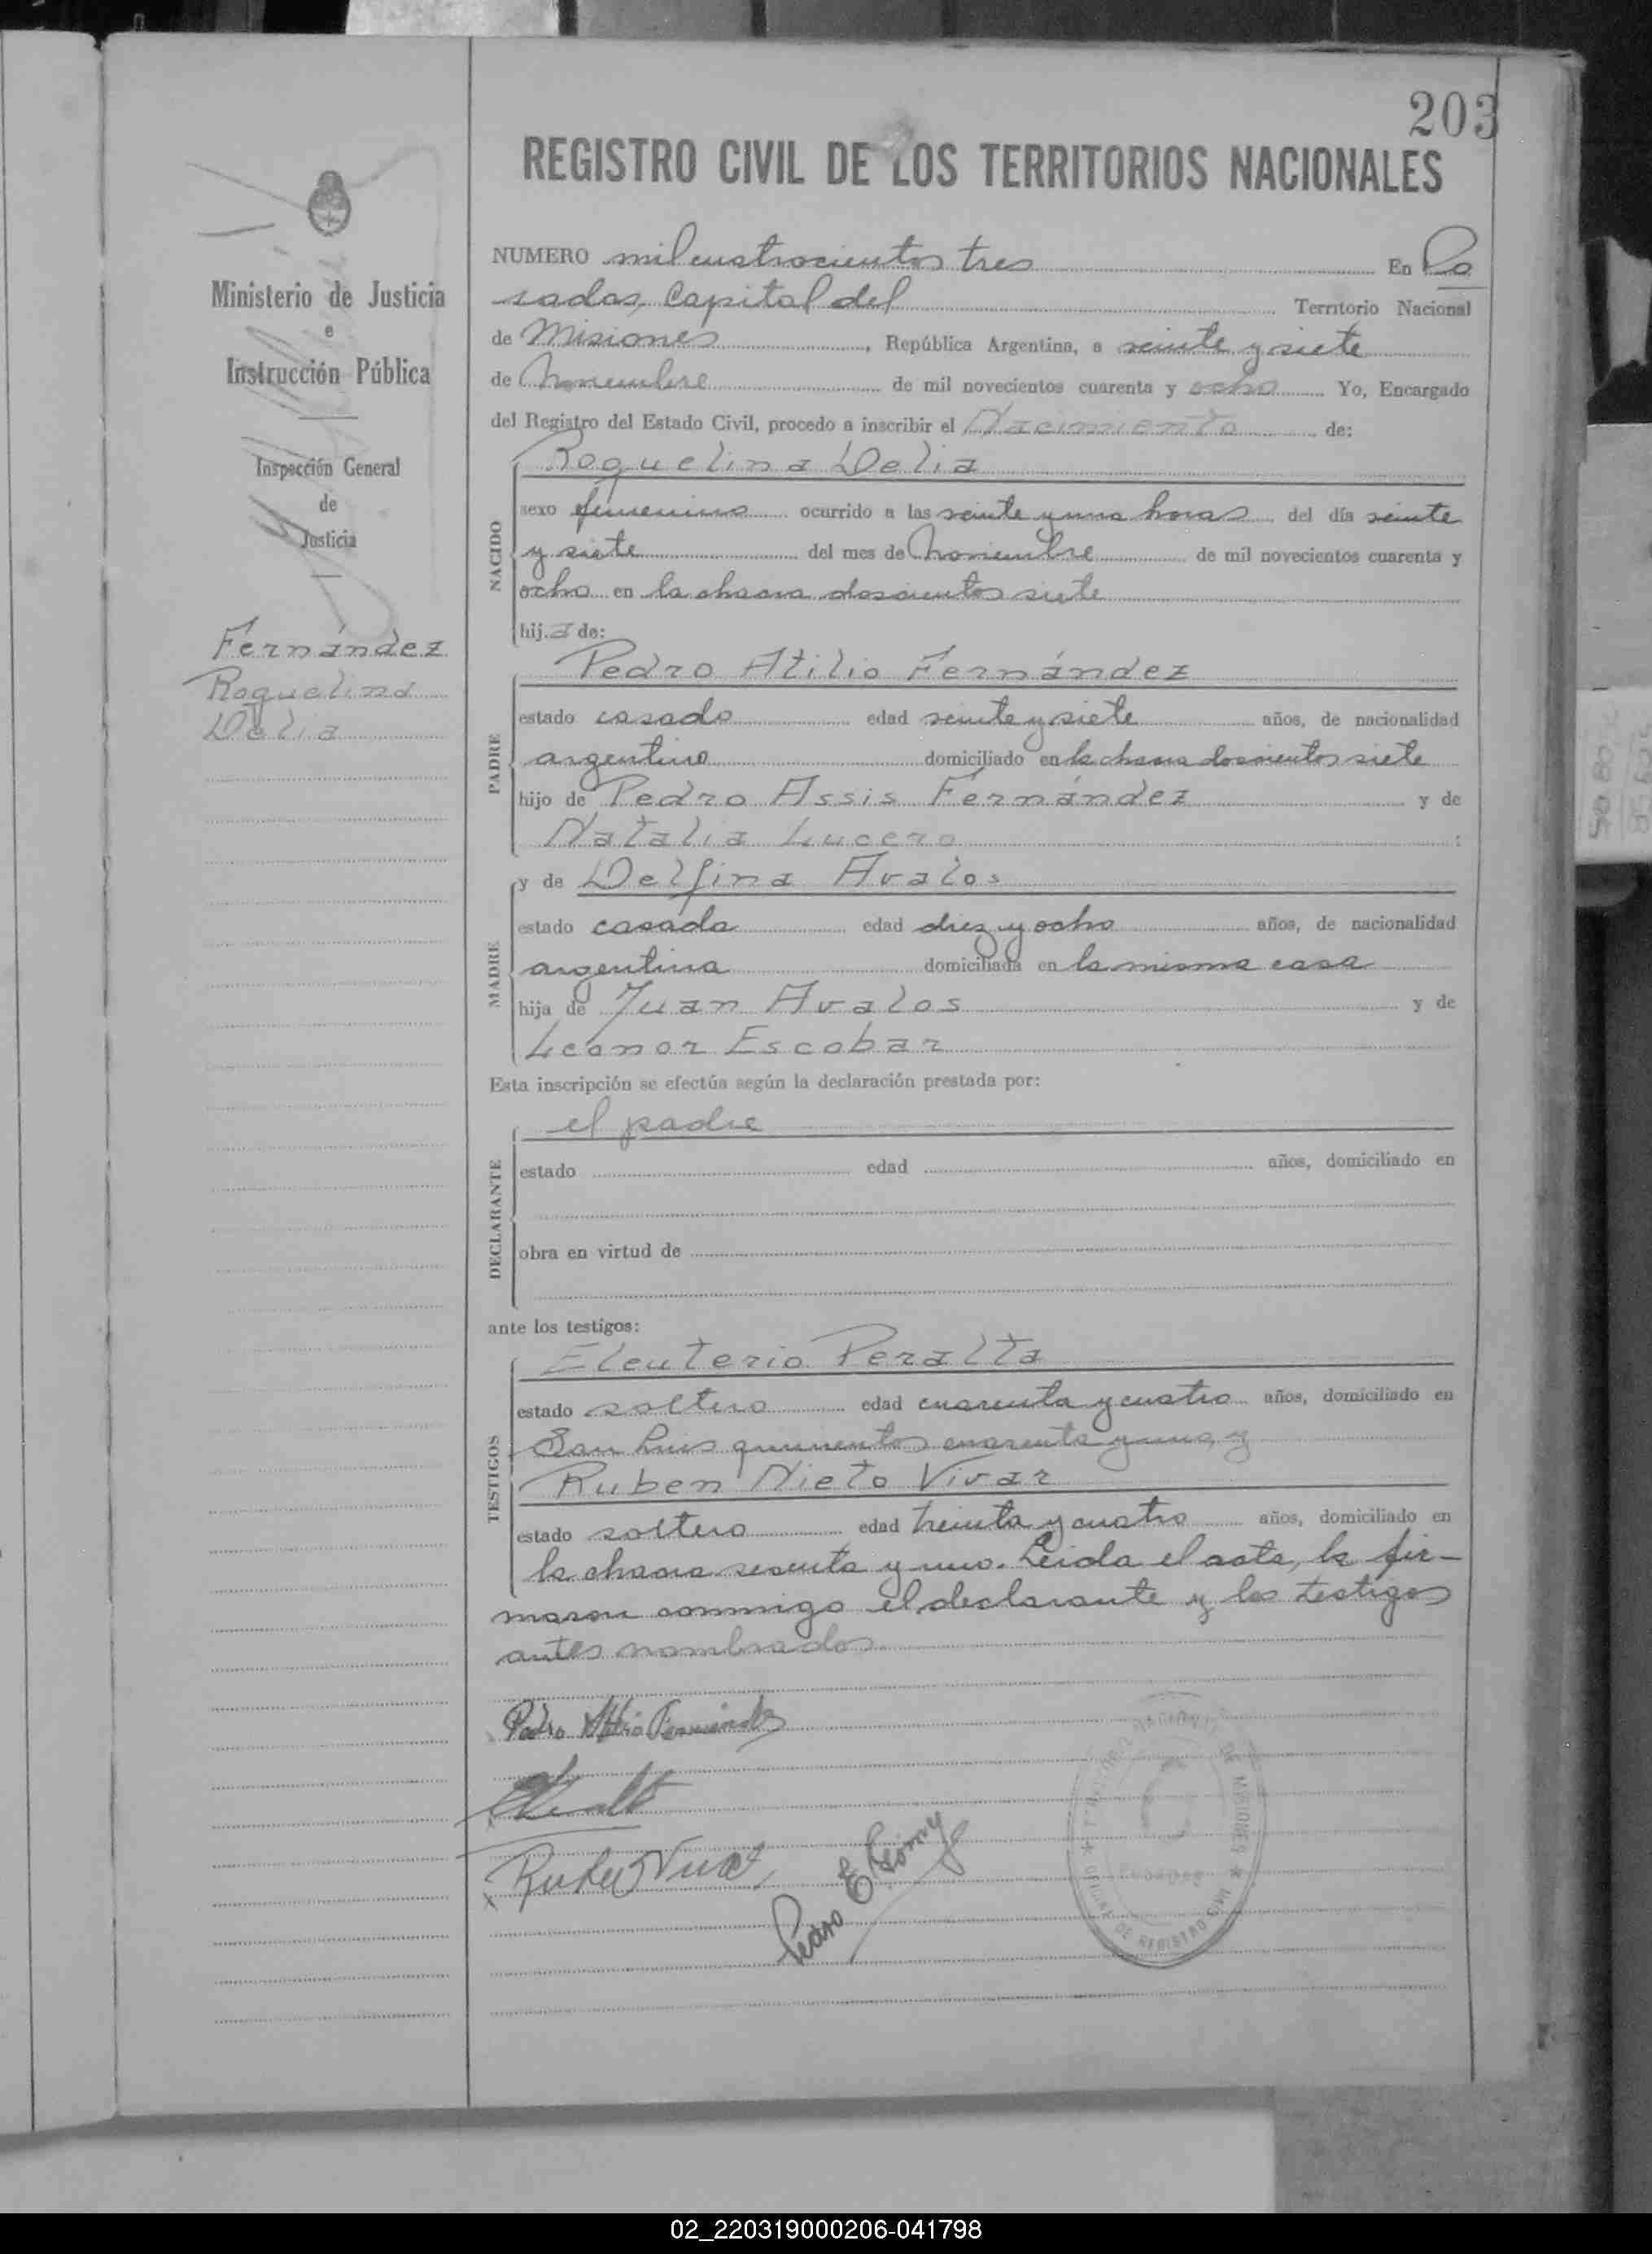 203
REGISTRO CIVIL DE LOS TERRITORIOS NACIONALES
Ministerio de Justicia
e
Instrucción Pública
Inspección General
de
Justicia
Fernández
Roquelina
Delia
NUMERO mil cuatrocientos tres En Po
sadas, Capital del Territorio Nacional
de Misiones, República Argentina, a veinte y siete
de Noviembre de mil novecientos cuarenta y ocho Yo, Encargado
del Registro del Estado Civil, procedo a inscribir el Nacimiento de:
NACIDO
Roquelina Delia
sexo femenino ocurrido a las veinte y una horas del día veinte
y siete del mes de Noviembre de mil novecientos cuarenta y
ocho en la chacra doscientos siete
hija de:
PADRE
Pedro Atilio Fernández
estado casado edad veinte y siete años, de nacionalidad
argentino domiciliado en la chacra doscientos siete
hijo de Pedro Assis Fernández y de
Natalia Lucero ;
MADRE
y de Delfina Avalos
estado casada edad diez y ocho años, de nacionalidad
argentina domiciliada en la misma casa
hija de Juan Avalos y de
Leonor Escobar
Esta inscripción se efectúa según la declaración prestada por:
DECLARANTE
el padre
estado edad años, domiciliado en
obra en virtud de
ante los testigos:
TESTIGOS
Eleuterio Peralta
estado soltero edad cuarenta y cuatro años, domiciliado en
San Luis quinientos cuarenta y uno, y
Ruben Nieto Vivar
estado soltero edad treinta y cuatro años, domiciliado en
la chacra sesenta y uno. Leida el acta, la fir-
maron conmigo el declarante y los testigos
antes nombrados.
Pedro Atilio Fernández
Pedro E
DE MISIONES
OFICINA DE REGISTRO CIVIL
02_220319000206-041798